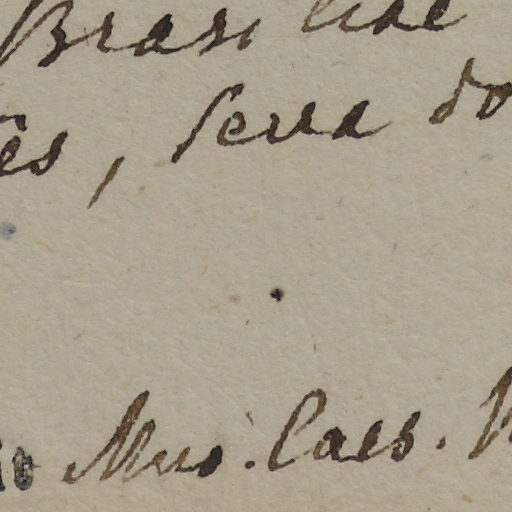 Brasiliae
es, Serra do
Mus. Caes. V